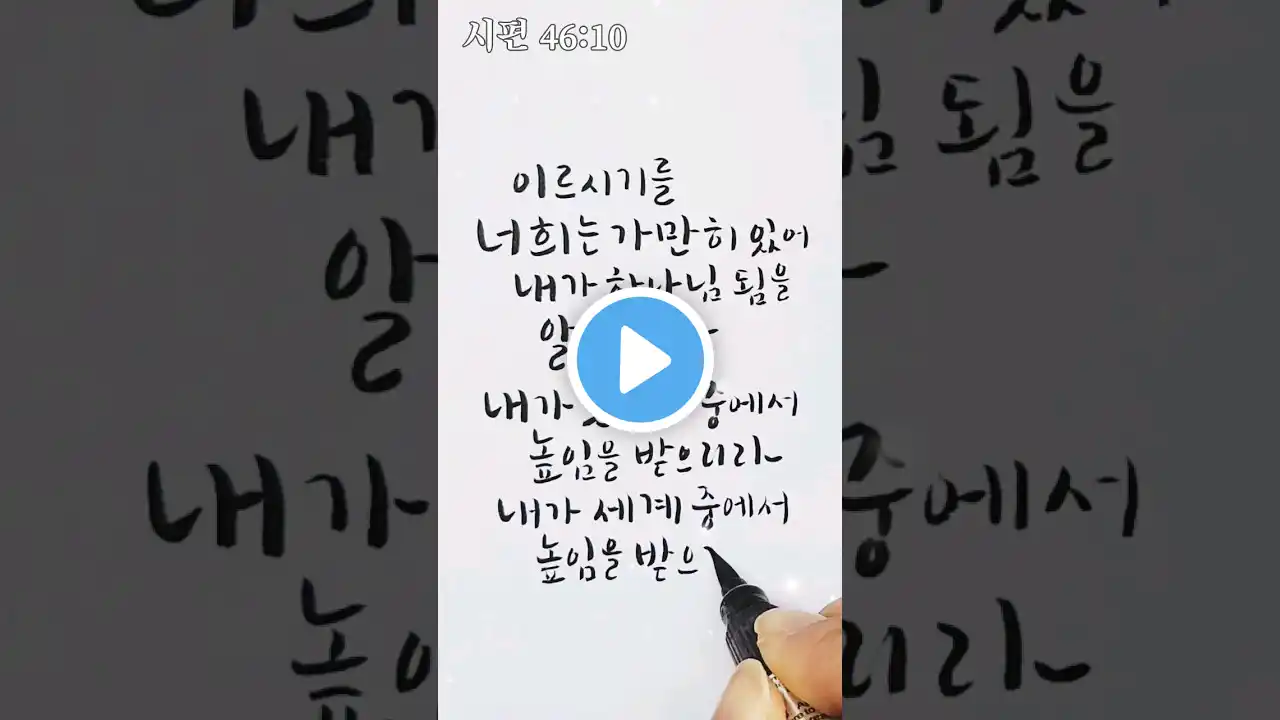 시편 46:10
이르시기를
너희는 가만히 있어
내가 하나님 됨을
알
내가 중에서
높임을 받으리라
내가 세계 중에서
높임을 받으